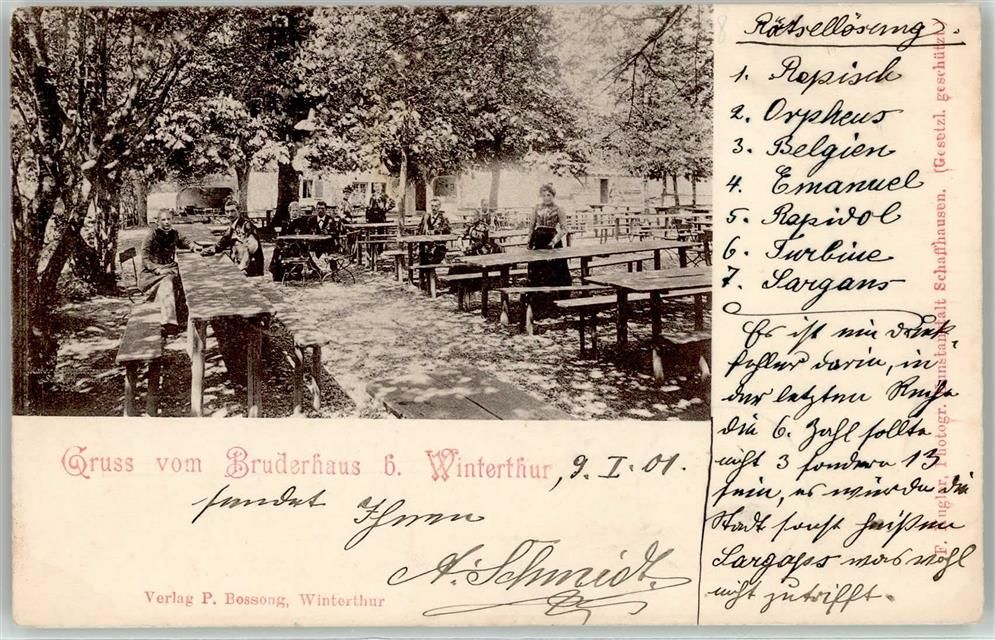 Rätsellösung.
1. Repisch
2. Orpheus
3. Belgien
4. Emanuel
5. Rapidol
6. Turbine
7. Sargans
Es ist ein Druk-
fehler darin, in
der letzten Reihe
die 6. Zahl sollte
nicht 3 sondern 13
sein, es würde die
Stadt sonst heißen
Sargaps was wohl
nicht zutrifft.
Gruss vom Bruderhaus b. Winterthur, 9. I. 01.
sendet Ihnen
A. Schmidt.
Verlag P. Bossong, Winterthur
Photogr. Kunstanstalt Schaffhausen. (Gesetzl. geschützt.)